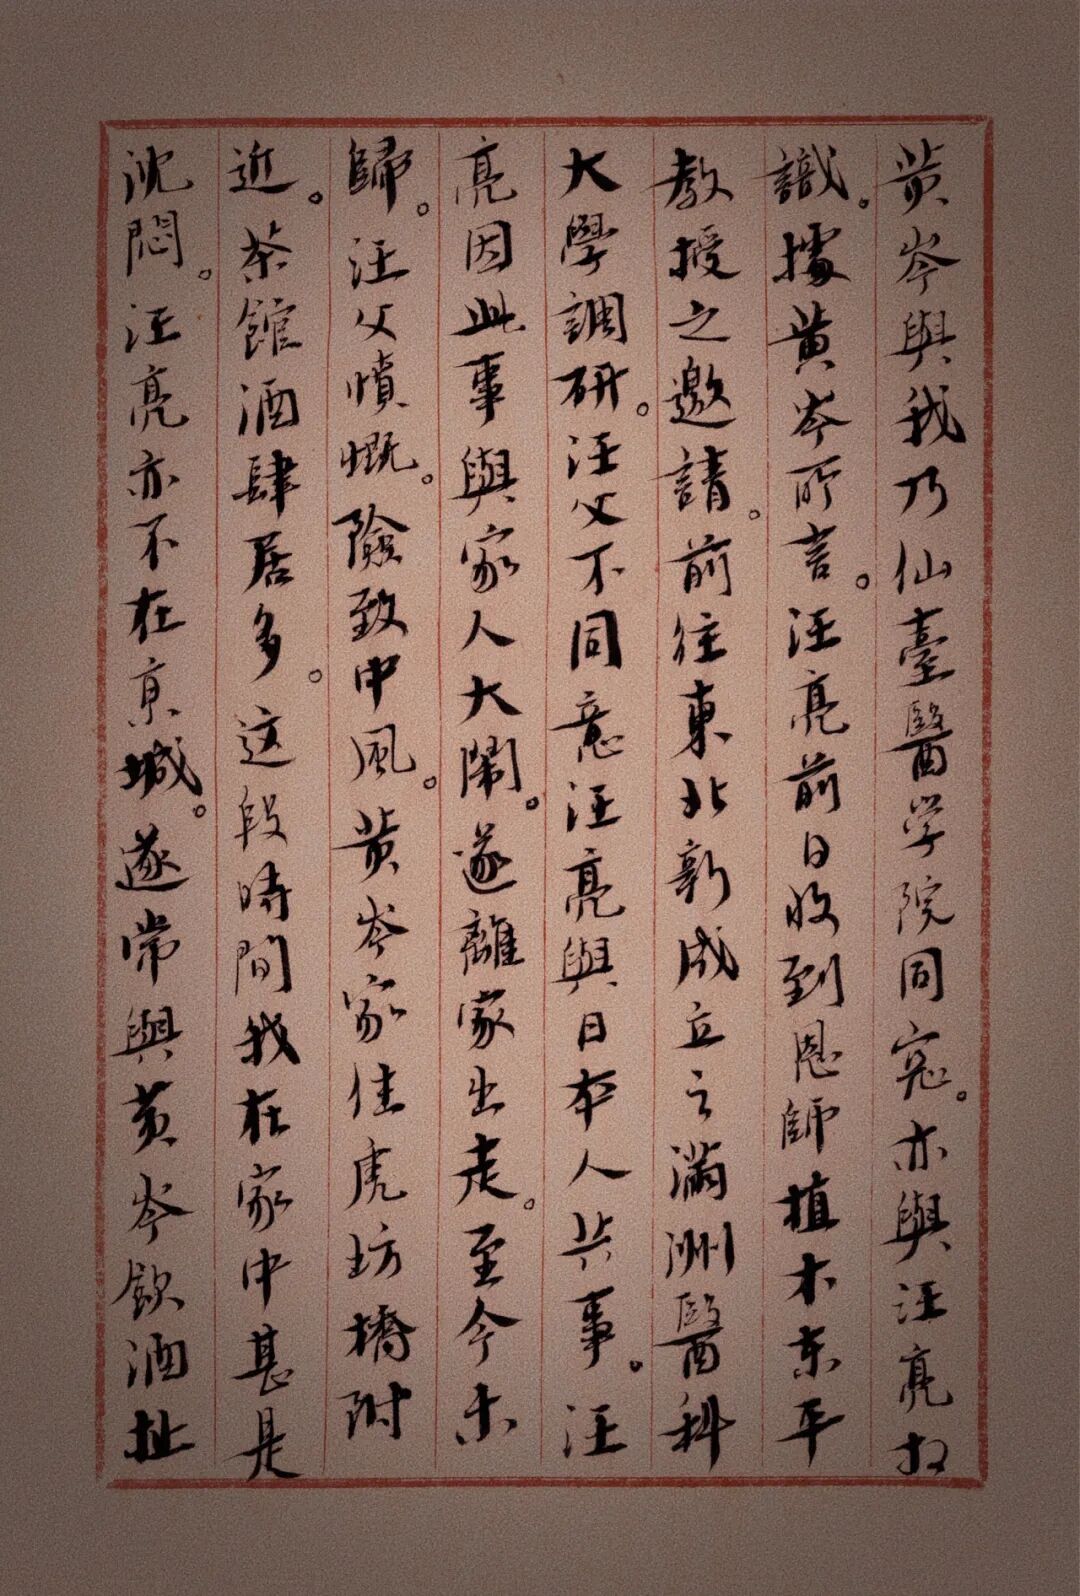 黄岑與我乃仙臺醫学院同窓。亦與汪亮相
識。據黄岑所言。汪亮前日收到恩師植木东平
教授之邀請。前往東北新成立之滿洲醫科
大學調研。汪父不同意汪亮與日本人共事。汪
亮因此事與家人大鬧。遂離家出走。至今未
歸。汪父憤慨。險致中風。黄岑家住虎坊橋附
近。茶館酒肆居多。这段時間我在家中甚是
沈悶。汪亮亦不在京城。遂常與黄岑飲酒扯